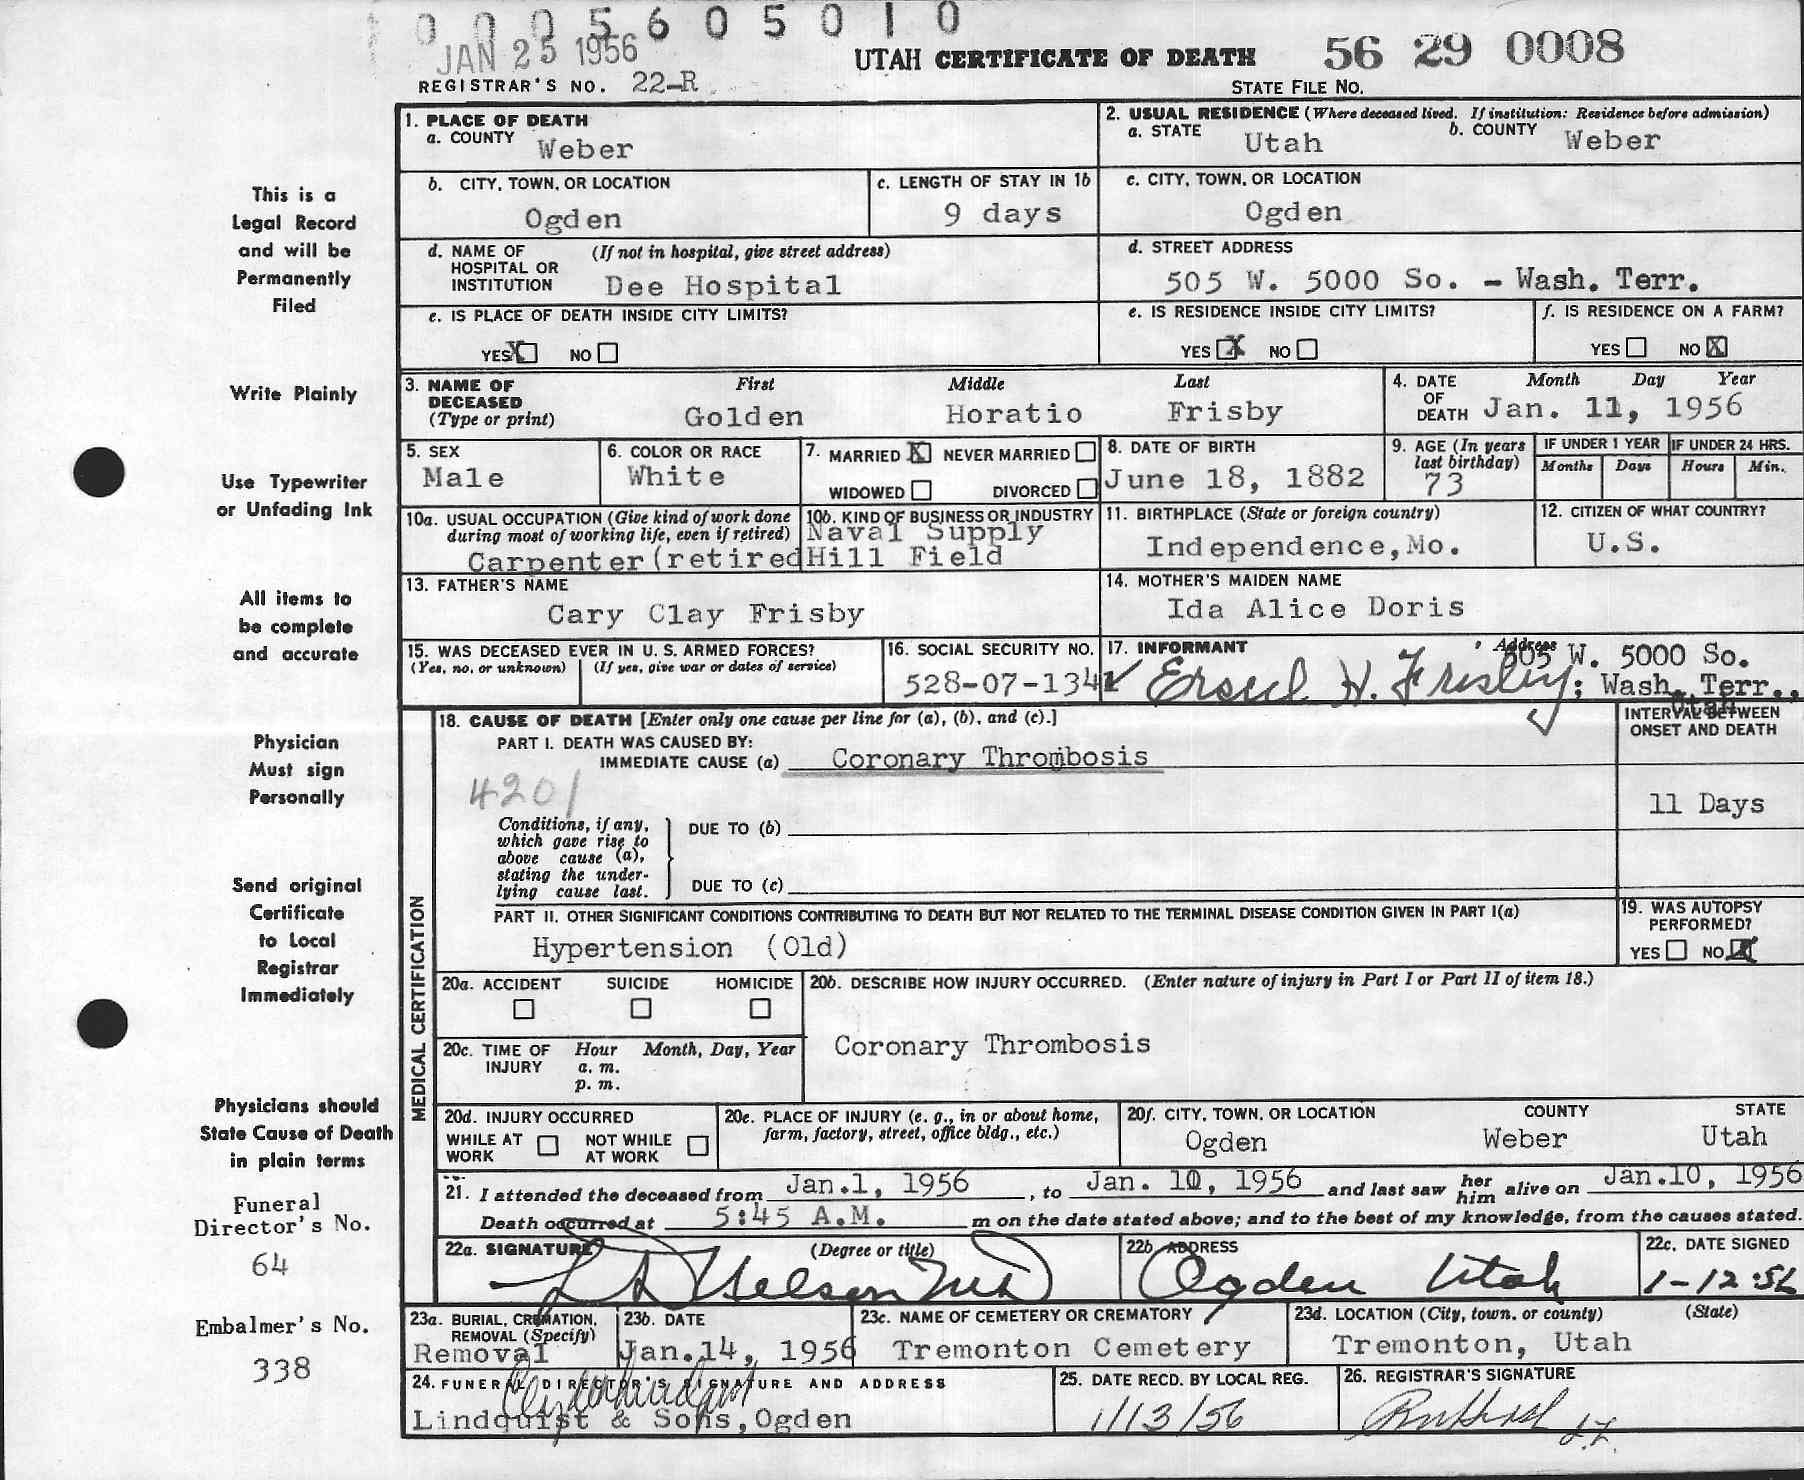 0 0 0 5 6 0 5 0 1 0
JAN 25 1956
UTAH CERTIFICATE OF DEATH 56 29 0008
REGISTRAR'S NO. 22-R STATE FILE NO.
1. PLACE OF DEATH
a. COUNTY Weber
2. USUAL RESIDENCE (Where deceased lived. If institution: Residence before admission)
a. STATE Utah b. COUNTY Weber
b. CITY, TOWN, OR LOCATION
Ogden
c. LENGTH OF STAY IN 1b
9 days
c. CITY, TOWN, OR LOCATION
Ogden
d. NAME OF HOSPITAL OR INSTITUTION (If not in hospital, give street address)
Dee Hospital
d. STREET ADDRESS
505 W. 5000 So. - Wash. Terr.
e. IS PLACE OF DEATH INSIDE CITY LIMITS?
YES X NO
e. IS RESIDENCE INSIDE CITY LIMITS?
YES X NO
f. IS RESIDENCE ON A FARM?
YES NO X
3. NAME OF DECEASED (Type or print)
First Middle Last
Golden Horatio Frisby
4. DATE OF DEATH Month Day Year
Jan. 11, 1956
5. SEX
Male
6. COLOR OR RACE
White
7. MARRIED X NEVER MARRIED
WIDOWED DIVORCED
8. DATE OF BIRTH
June 18, 1882
9. AGE (In years last birthday)
73
IF UNDER 1 YEAR
Months Days
IF UNDER 24 HRS.
Hours Min.
10a. USUAL OCCUPATION (Give kind of work done during most of working life, even if retired)
Carpenter (retired
10b. KIND OF BUSINESS OR INDUSTRY
Naval Supply
Hill Field
11. BIRTHPLACE (State or foreign country)
Independence, Mo.
12. CITIZEN OF WHAT COUNTRY?
U.S.
13. FATHER'S NAME
Cary Clay Frisby
14. MOTHER'S MAIDEN NAME
Ida Alice Doris
15. WAS DECEASED EVER IN U. S. ARMED FORCES?
(Yes, no, or unknown) (If yes, give war or dates of service)
16. SOCIAL SECURITY NO.
528-07-1341
17. INFORMANT Address
H. Frisby; 505 W. 5000 So.
Wash. Terr.,
Utah
18. CAUSE OF DEATH [Enter only one cause per line for (a), (b), and (c).]
PART I. DEATH WAS CAUSED BY:
IMMEDIATE CAUSE (a) Coronary Thrombosis
4201
Conditions, if any, which gave rise to above cause (a), stating the underlying cause last.
DUE TO (b)
DUE TO (c)
INTERVAL BETWEEN ONSET AND DEATH
11 Days
PART II. OTHER SIGNIFICANT CONDITIONS CONTRIBUTING TO DEATH BUT NOT RELATED TO THE TERMINAL DISEASE CONDITION GIVEN IN PART I(a)
Hypertension (Old)
19. WAS AUTOPSY PERFORMED?
YES NO X
20a. ACCIDENT SUICIDE HOMICIDE
20b. DESCRIBE HOW INJURY OCCURRED. (Enter nature of injury in Part I or Part II of item 18.)
Coronary Thrombosis
20c. TIME OF INJURY Hour Month, Day, Year
a. m.
p. m.
20d. INJURY OCCURRED
WHILE AT WORK NOT WHILE AT WORK
20e. PLACE OF INJURY (e. g., in or about home, farm, factory, street, office bldg., etc.)
20f. CITY, TOWN, OR LOCATION COUNTY STATE
Ogden Weber Utah
21. I attended the deceased from Jan.1, 1956, to Jan. 10, 1956 and last saw her him alive on Jan.10, 1956
Death occurred at 5:45 A.M. m on the date stated above; and to the best of my knowledge, from the causes stated.
22a. SIGNATURE (Degree or title)
Nelson MD
22b. ADDRESS
Ogden Utah
22c. DATE SIGNED
1-12-56
23a. BURIAL, CREMATION, REMOVAL (Specify)
Removal
23b. DATE
Jan.14, 1956
23c. NAME OF CEMETERY OR CREMATORY
Tremonton Cemetery
23d. LOCATION (City, town, or county) (State)
Tremonton, Utah
24. FUNERAL DIRECTOR'S SIGNATURE AND ADDRESS
Lindquist & Sons, Ogden
25. DATE RECD. BY LOCAL REG.
1/13/56
26. REGISTRAR'S SIGNATURE
MEDICAL CERTIFICATION
This is a
Legal Record
and will be
Permanently
Filed
Write Plainly
Use Typewriter
or Unfading Ink
All items to
be complete
and accurate
Physician
Must sign
Personally
Send original
Certificate
to Local
Registrar
Immediately
Physicians should
State Cause of Death
in plain terms
Funeral
Director's No.
64
Embalmer's No.
338